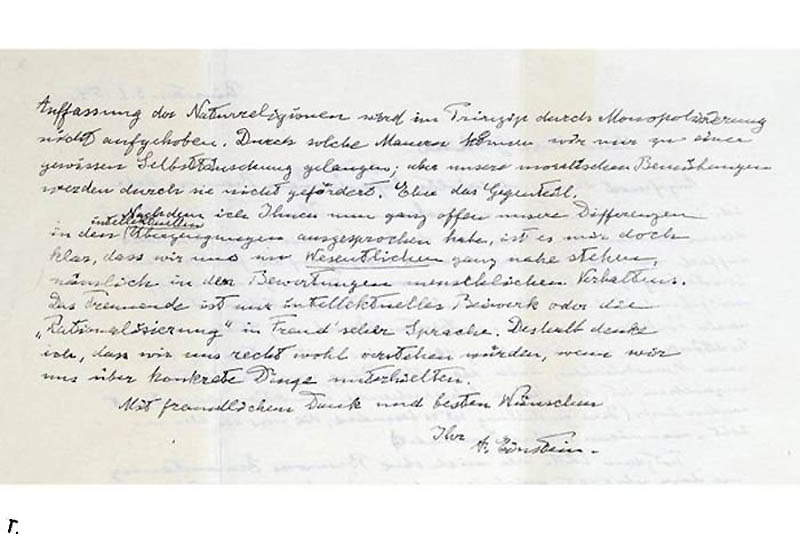 Auffassung der Naturreligionen wird im Prinzip durch Monopolisierung
nicht aufgehoben. Durch solche Mauern können wir nur zu einer
gewissen Selbsttäuschung gelangen; aber unsere moralischen Bemühungen
werden durch sie nicht gefördert. Eher das Gegenteil.
Nachdem ich Ihnen nun ganz offen unsere Differenzen
intellektuellen
in den Überzeugungen ausgesprochen habe, ist es mir doch
klar, dass wir uns im Wesentlichen ganz nahe stehen,
nämlich in den Bewertungen menschlichen Verhaltens.
Das Trennende ist nur intellektuelles Beiwerk oder die
„Rationalisierung" in Freud'scher Sprache. Deshalb denke
ich, dass wir uns recht wohl verstehen würden, wenn wir
uns über konkrete Dinge unterhielten.
Mit freundlichem Dank und besten Wünschen
Ihr
A. Einstein.
r.